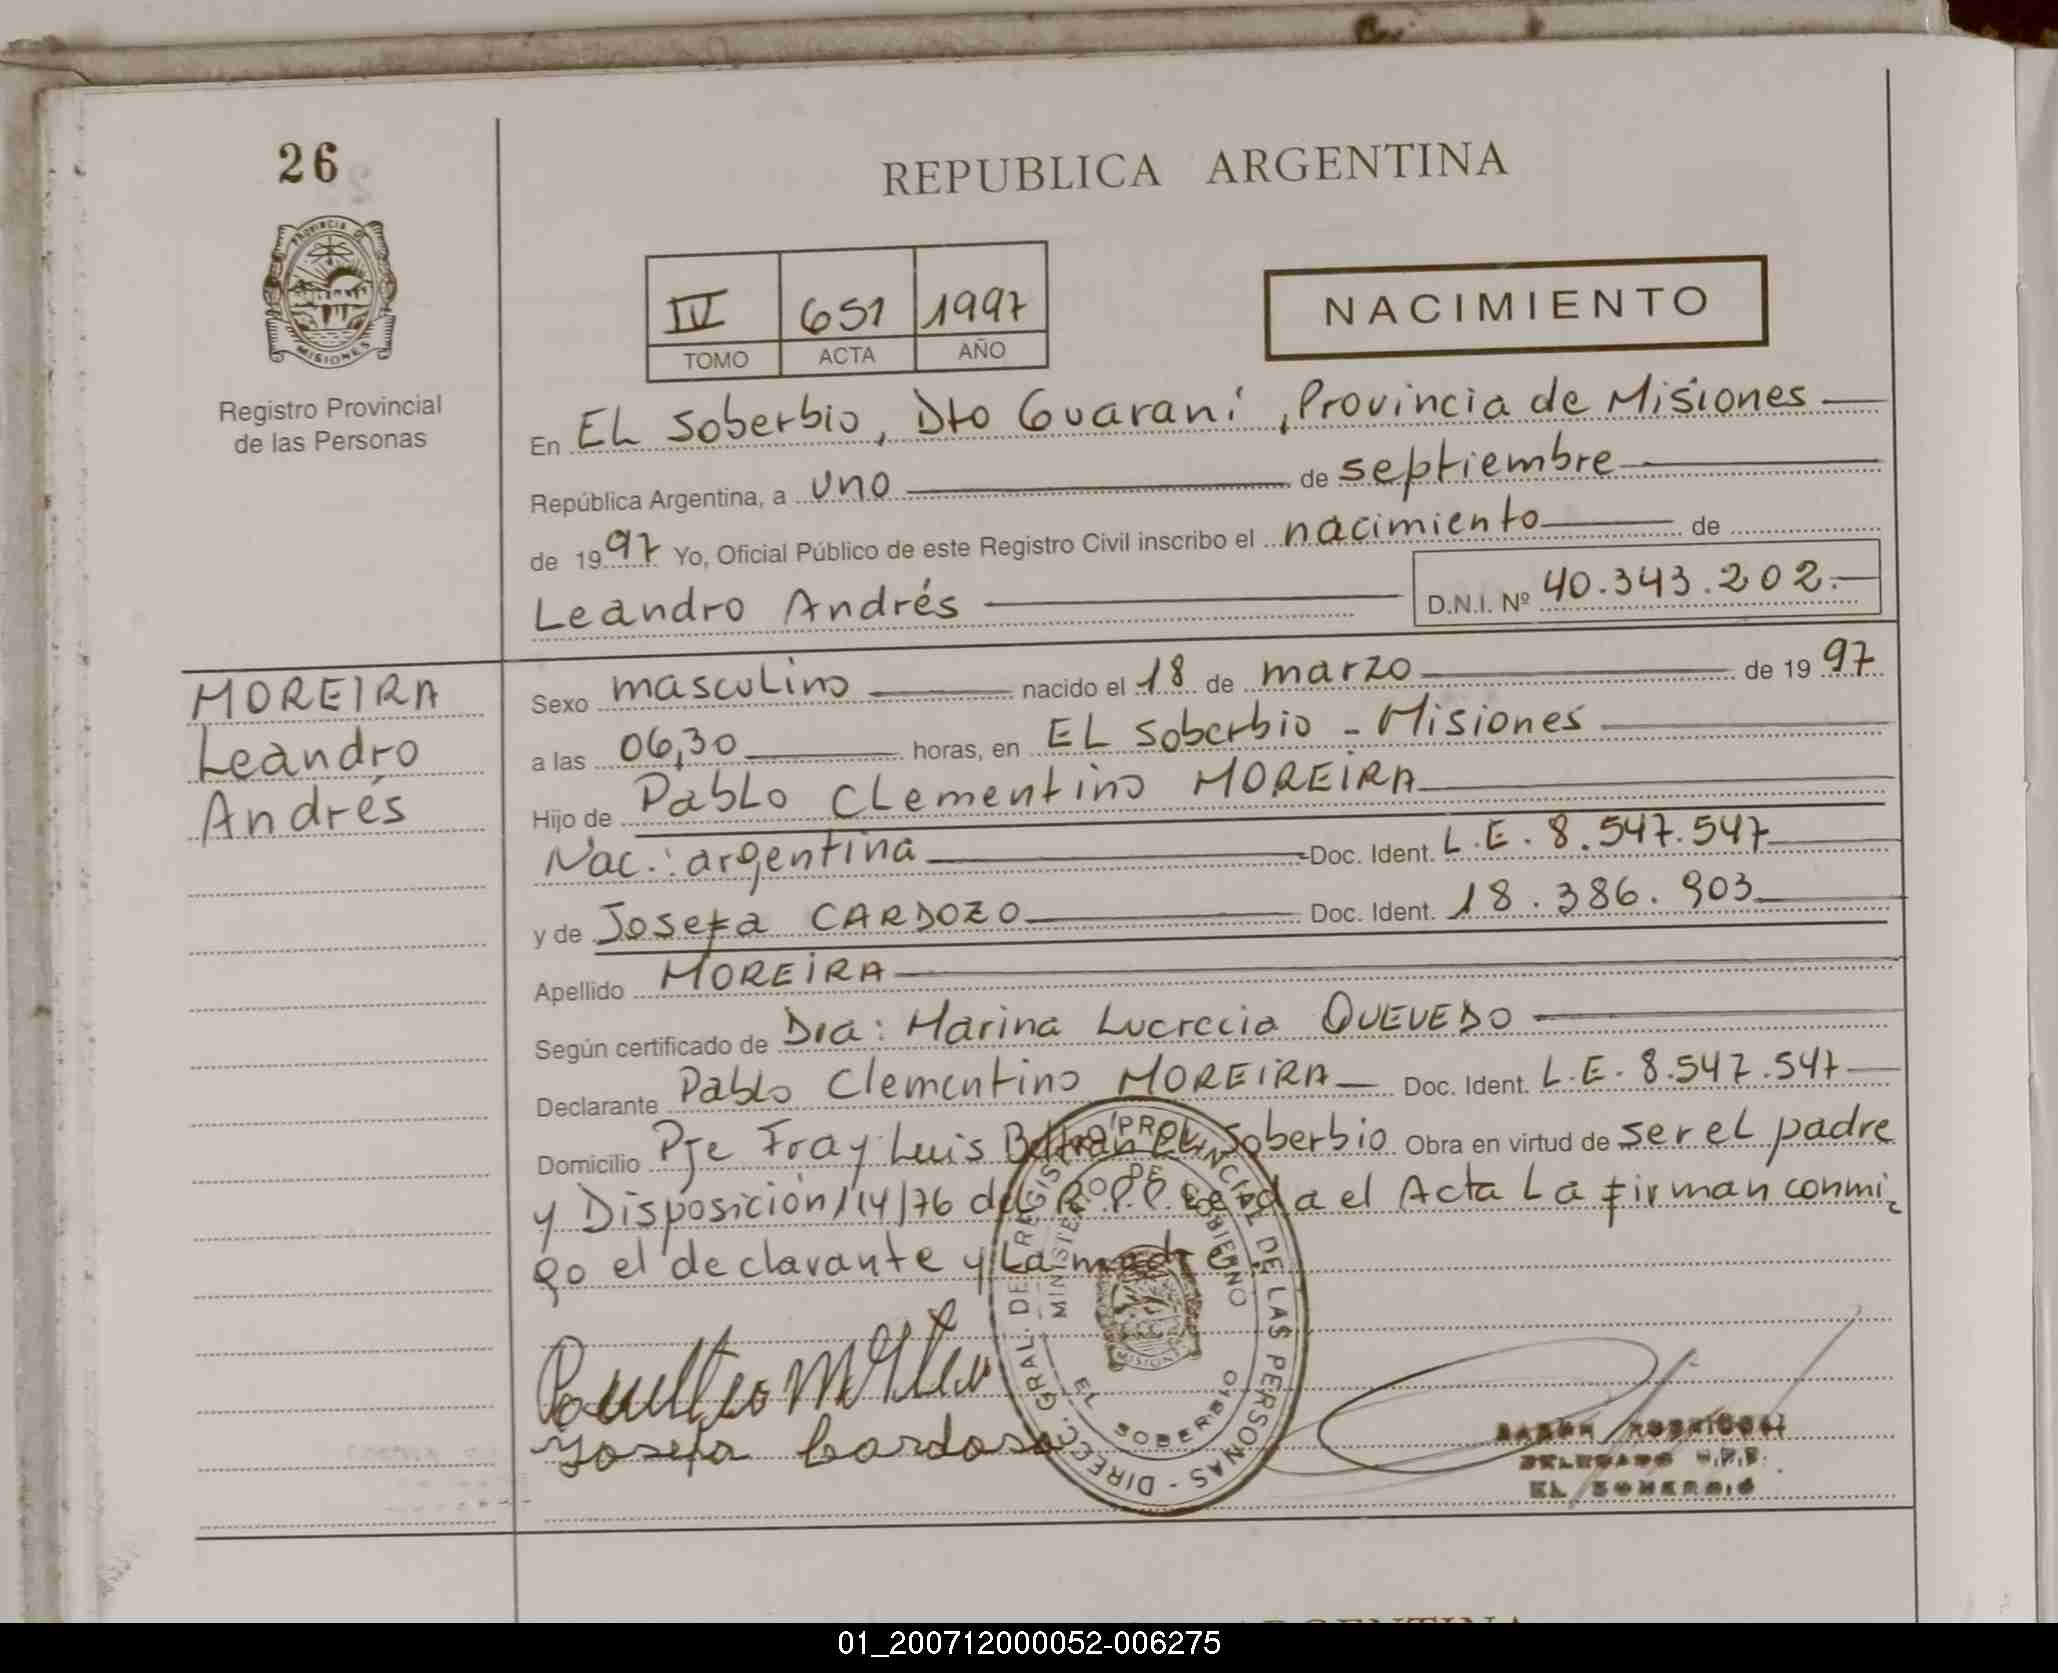 26
REPUBLICA ARGENTINA
PROVINCIA D
MISIONES
Registro Provincial
de las Personas
IV 651 1997
TOMO ACTA AÑO
NACIMIENTO
En EL Soberbio, Dto Guaraní, Provincia de Misiones
República Argentina, a uno de septiembre
de 1997 Yo, Oficial Público de este Registro Civil inscribo el nacimiento de
Leandro Andrés D.N.I. Nº 40.343.202.-
MOREIRA
Leandro
Andrés
Sexo masculino nacido el 18 de marzo de 1997
a las 06,30 horas, en EL Soberbio - Misiones
Hijo de Pablo Clementino MOREIRA
Nac.: argentina Doc. Ident. L.E. 8.547.547
y de Josefa CARDOZO Doc. Ident. 18.386.903
Apellido MOREIRA
Según certificado de Dra: Marina Lucrecia QUEVEDO
Declarante Pablo Clementino MOREIRA Doc. Ident. L.E. 8.547.547
Domicilio Pje Fray Luis Beltrán EL Soberbio Obra en virtud de ser el padre
y Disposición 114/76 del R.P.P. Leída el Acta La firman conmi
go el declarante y La madre
Josefa Cardoso
DIRECC. GRAL. DE REGISTRO PROVINCIAL DE LAS PERSONAS -
MINISTERIO DE GOBIERNO
MISIONES
EL SOBERBIO
RODRIGUEZ
DELEGADO R.P.P.
EL SOBERBIO
ARGENTINA
01_200712000052-006275